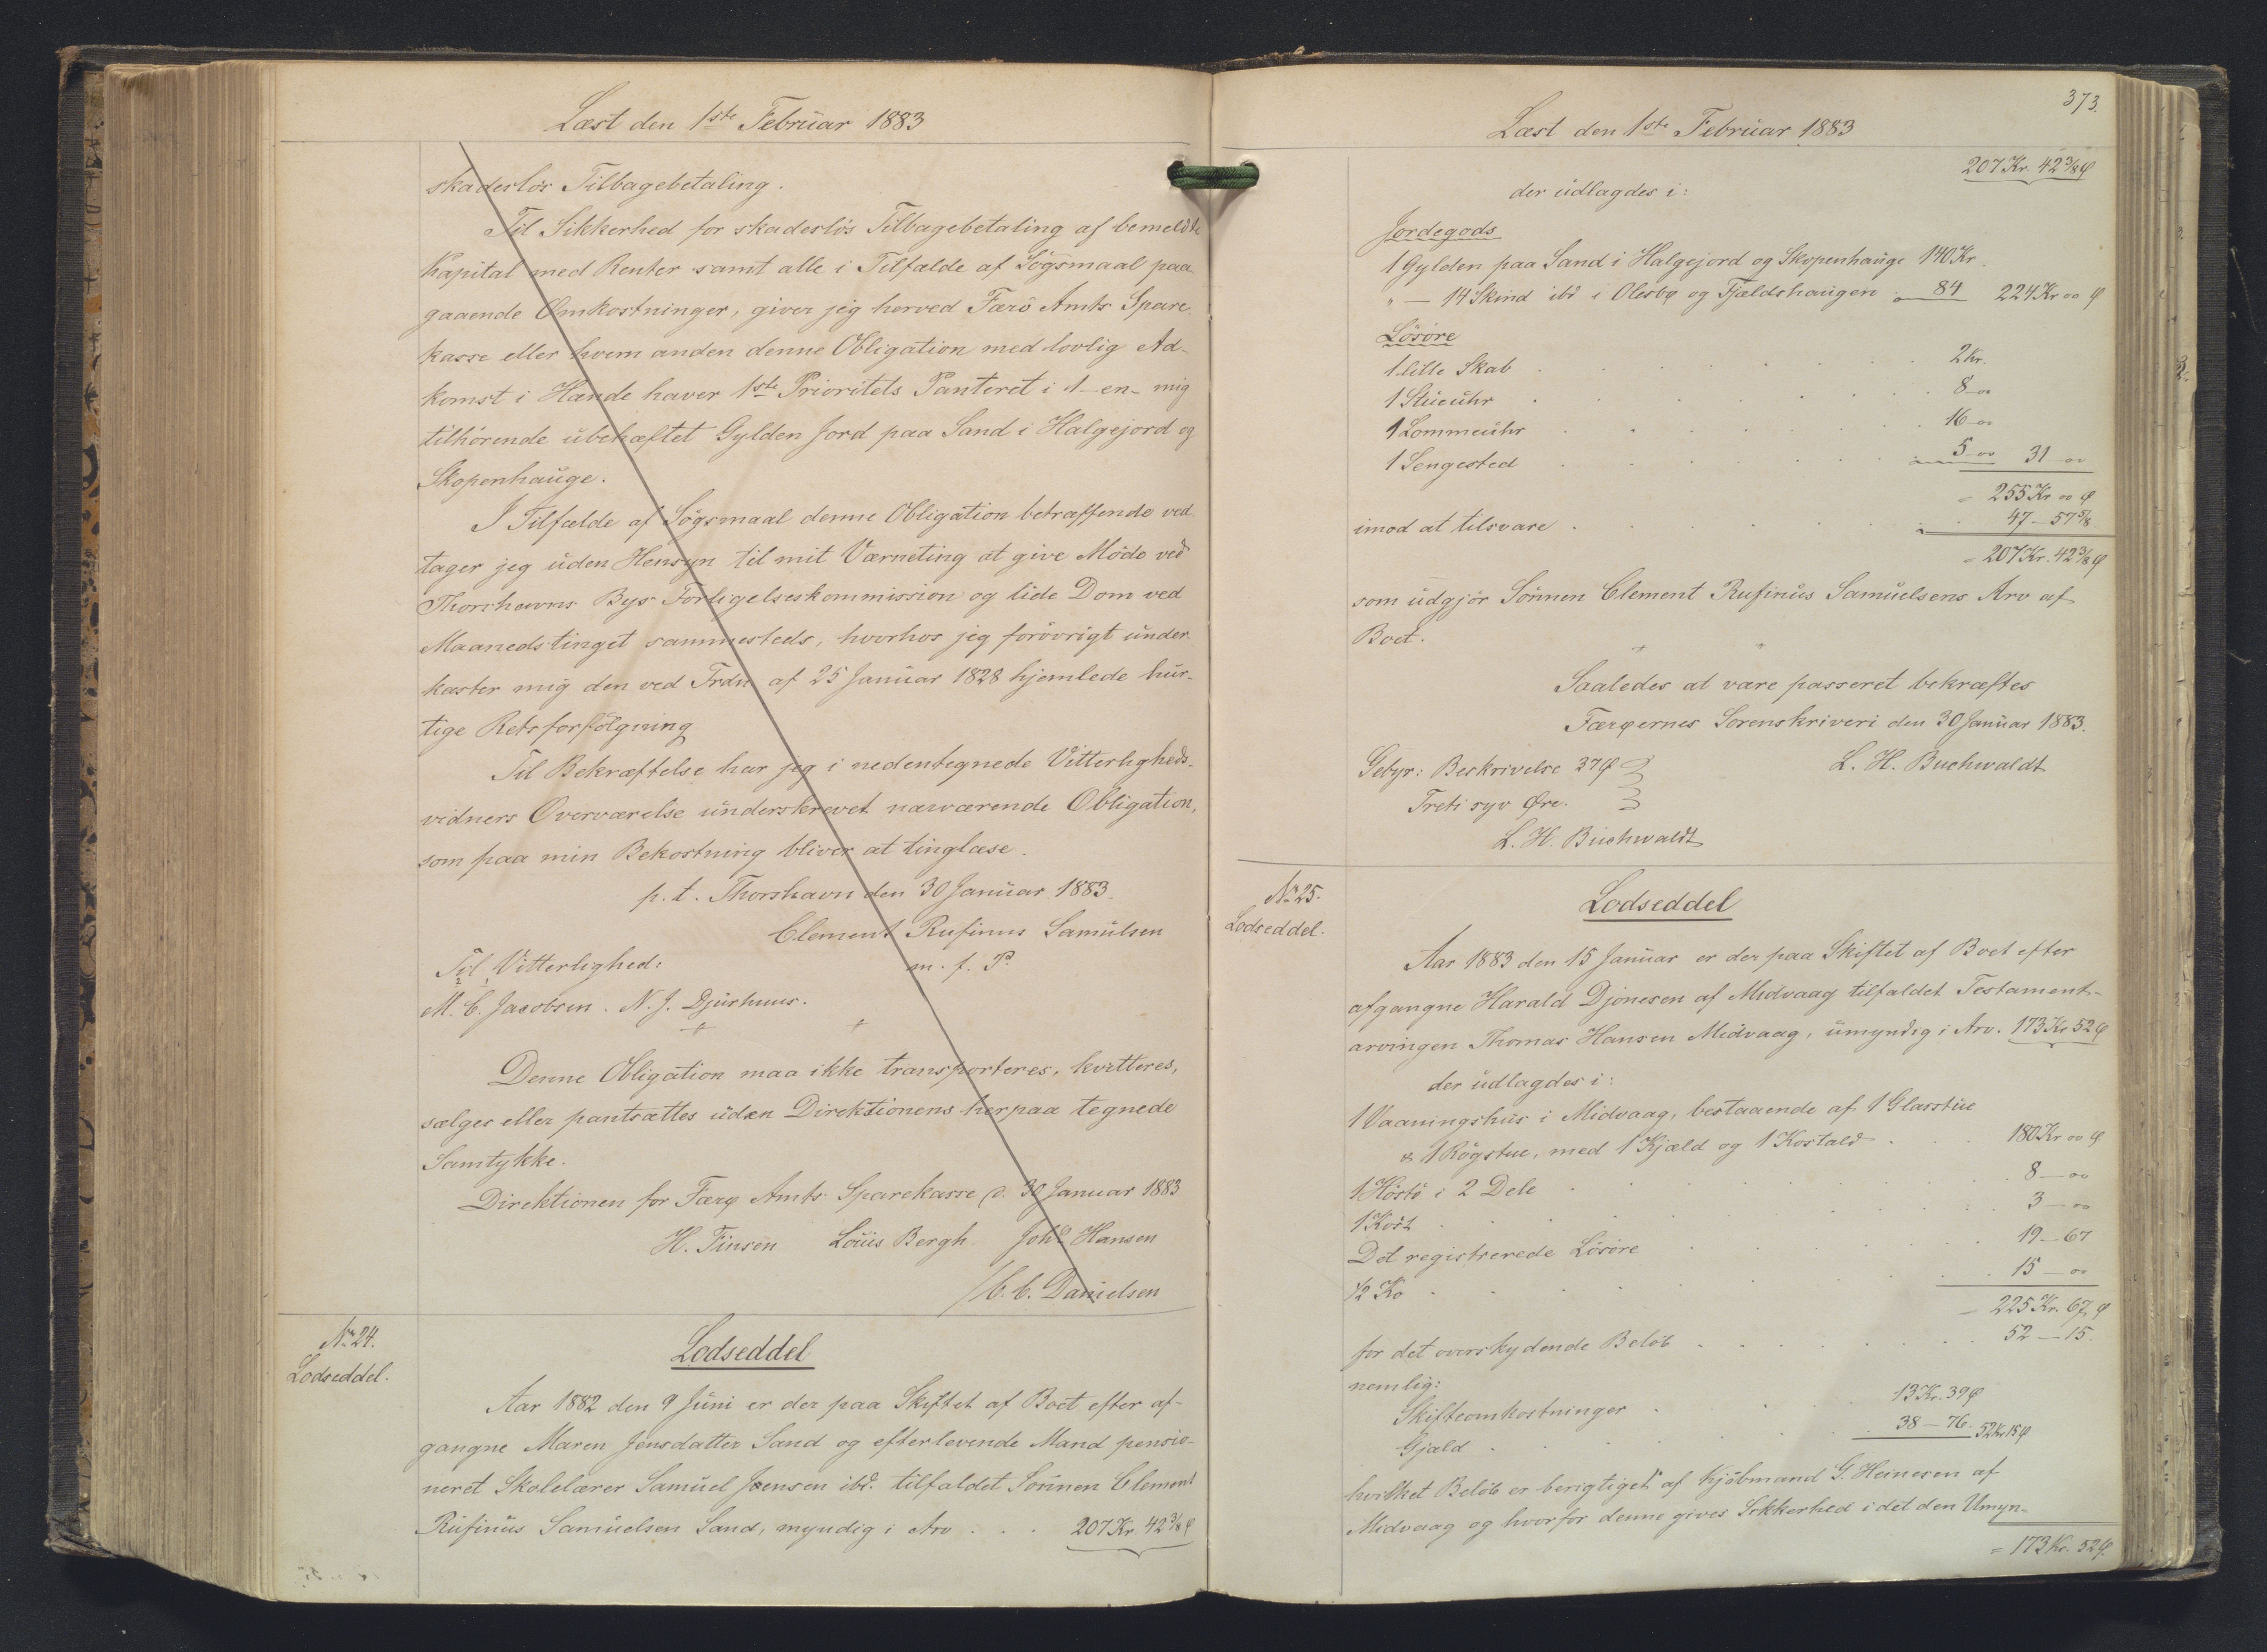 Læst den 1ste Februar 1883
skadeslös Tilbagebetaling.
Til Sikkerhed for skadeslös Tilbagebetaling af bemeldte
Kapital med Renter samt alle i Tilfælde af Sögsmaal paa-
gaaende Omkostninger, giver jeg herved Færö Amts Spare-
kasse eller hvem anden denne Obligation med lovlig Ad-
komst i Hænde haver 1ste Prioritets Panteret i 1 - en - mig
tilhörende ubehæftet Gylden Jord paa Sand i Halgejord og
Skopenhauge.
I Tilfælde af Sögsmaal denne Obligation betræffende ved-
tager jeg uden Hensyn til mit Værneting at give Möde ved
Thorshavns Bys Forligelseskommission og lide Dom ved
Maanedstinget sammesteds, hvorhos jeg forövrigt under-
kaster mig den ved Frdn af 25 Januar 1828 hjemlede hur-
tige Retsforfölgning
Til Bekræftelse har jeg i nedentegnede Vitterligheds-
vidners Overværelse underskrevet nærværende Obligation,
som paa min Bekostning bliver at tinglæse.
p. t. Thorshavn den 30 Januar 1883.
Clement Rufinus Samulsen
Til Vitterlighed: m. f. P.
M. C. Jacobsen. N. J. Djurhuus.
Denne Obligation maa ikke transporteres, kvitteres,
sælges eller pantsættes uden Direktionens herpaa tegnede
Samtykke.
Direktionen for Færø Amts Sparekasse d. 30 Januar 1883
H. Finsen Louis Bergh Johs Hansen
/C. C. Danielsen
No 24.
Lodseddel.
Lodseddel
Aar 1882 den 9 Juni er der paa Skiftet af Boet efter af-
gangne Maren Jensdatter Sand og efterlevende Mand pensio-
neret Skolelærer Samuel Joensen ibd. tilfaldet Sönnen Clement
Rufinus Samuelsen Sand, myndig i Arv . . . 207 Kr. 42 3/8 Ø
373.
Læst den 1ste Februar 1883
207 Kr. 42 3/8 Ø
der udlagdes i:
Jordegods
1 Gylden paa Sand i Halgejord og Skopenhauge 140 Kr.
" — 14 Skind ibd i Olesbø og Fjældshaugen 84 224 Kr 00 Ø
Lösöre
1 lille Skab 2 Kr.
1 Stueuhr 8 - 00
1 Lommeuhr 16 - 00
1 Sengested 5 - 00 31 - 00
= 255 Kr 00 Ø
imod at tilsvare 47 - 57 5/8
= 207 Kr. 42 3/8 Ø
som udgjör Sönnen Clement Rufinus Samuelsens Arv af
Boet.
Saaledes at være passeret bekræftes
Færøernes Sorenskriveri den 30 Januar 1883.
Gebyr: Beskrivelse 37 Ø L. H. Buchwaldt
Treti syv Øre.
L. H. Buchwaldt
No 25.
Lodseddel.
Lodseddel
Aar 1883 den 15 Januar er der paa Skiftet af Boet efter
afgangne Harald Djonesen af Midvaag tilfaldet Testament-
arvingen Thomas Hansen Midvaag, umyndig i Arv. 173 Kr 52 Ø
der udlagdes i:
1 Vaaningshus i Midvaag, bestaaende af 1 Glasstue
& 1 Rögstue, med 1 Kjæld og 1 Kostald . . . 180 Kr 00 Ø
1 Höstö i 2 Dele 8 - 00
1 Köst 3 - 00
Det registrerede Lösöre 19 - 67
1/2 Ko 15 - 00
= 225 Kr. 67 Ø
for det overskydende Belöb 52 - 15.
nemlig:
Skifteomkostninger 13 Kr. 39 Ø
Gjæld 38 - 76. 52 Kr 15 Ø
hvilket Belöb er berigtiget af Kjöbmand G. Heinesen af
Midvaag og hvorfor denne gives Sikkerhed i det den Umyn-
= 173 Kr. 52 Ø.